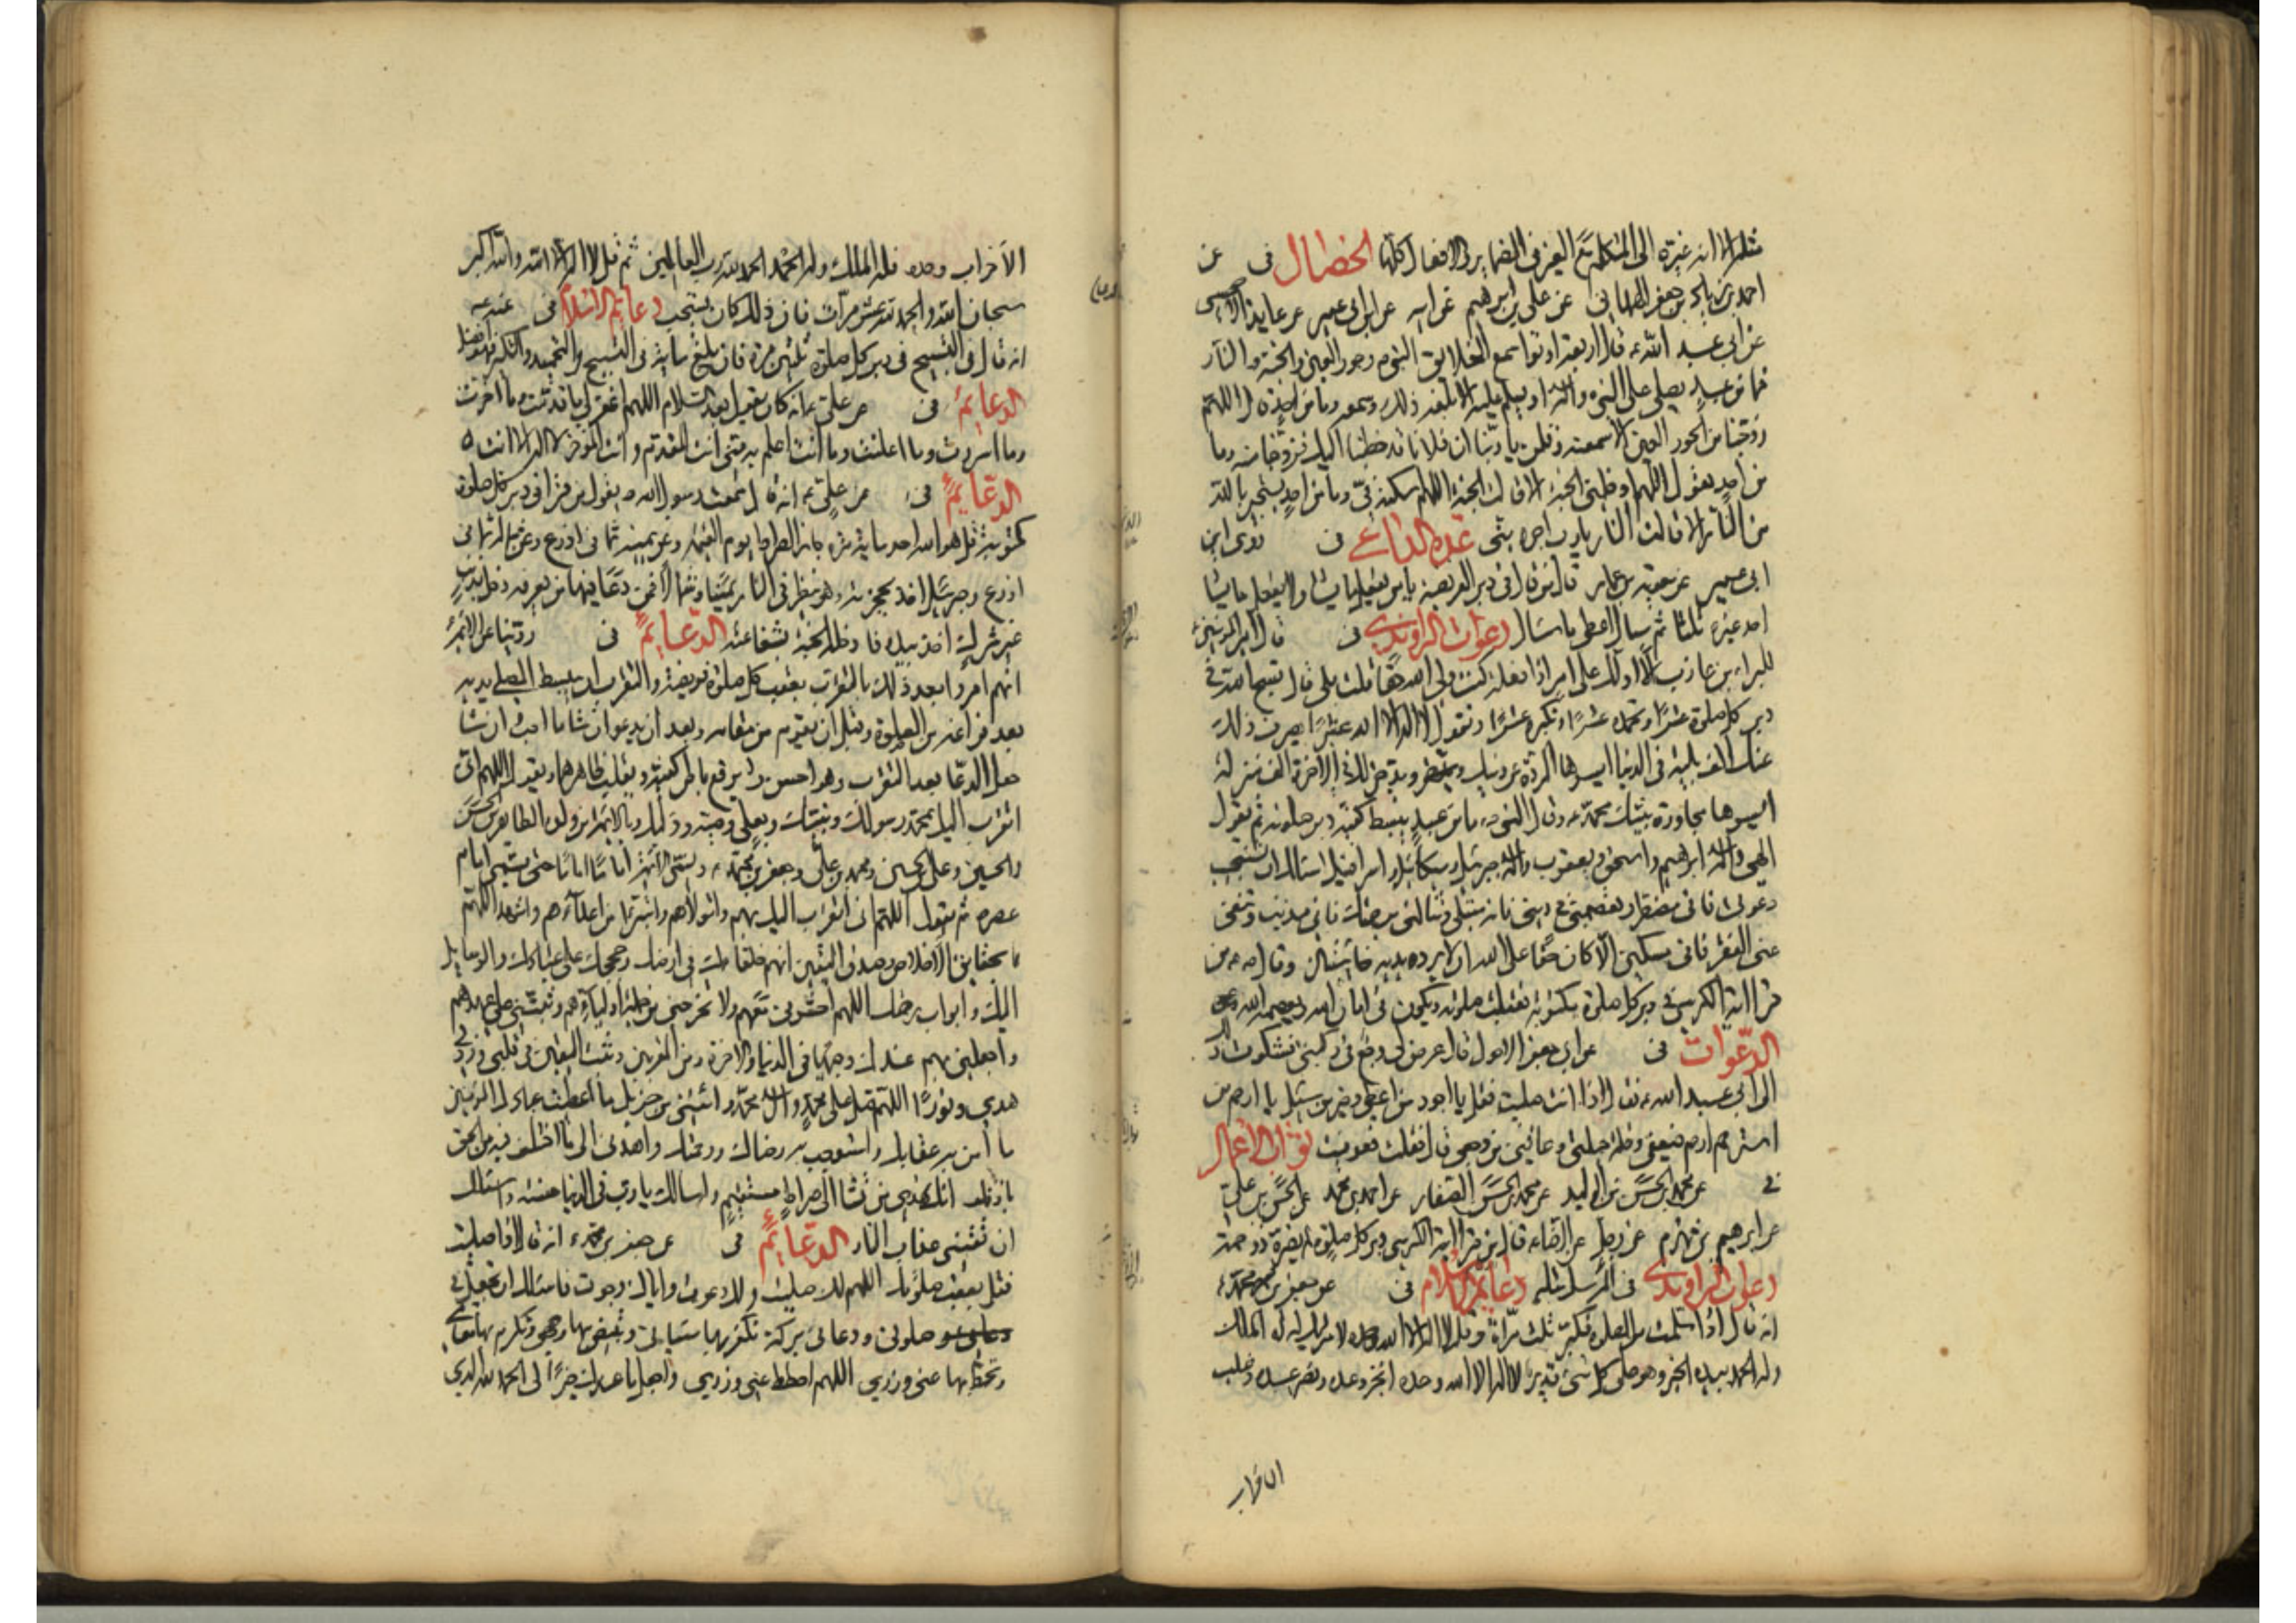 مثله الا انه غيره الى المتكلم مع الغير في الضماير والافعال كلها الخصال في عن
احمد بن زياد بن جعفر الهمداني عن علي بن ابرهيم عن ابيه عن ابن ابي عمير عن عايذ الاحمسي
عن ابي عبد الله ء قال اربعة اوتوا سمع الخلايق النبي ص وحور العين والجنة والنار
فما من عبد يصلي على النبي ص وآله او يسلم عليه الا بلغه ذلك وسمعه وما من احد قال اللهم
زوجنا من الحور العين الا سمعنه وقلن يا ربنا ان فلانا قد خطبنا اليك فزوجنا منه وما
من احد يقول اللهم ادخلني الجنة الا قالت الجنة اللهم اسكنه في وما من احد يستجير بالله
من النار الا قالت النار يا رب اجره مني عدة الداعي في روى ابن
ابي عمير عن معوية بن عمار قال من قال في دبر الفريضة يا من يفعل ما يشاء ولا يفعل ما يشاء
احد غيره ثلثا ثم سال اعطي ما سال دعوات الراوندي في قال امير المؤمنين ء
للبراء بن عازب الا ادلك على امر اذا فعلته كنت ولي الله حقا قلت بلى قال تسبح الله في
دبر كل صلوة عشرا وتحمده عشرا وتكبره عشرا وتقول لا اله الا الله عشرا يصرف ذلك
عنك الف بلية في الدنيا ايسرها الردة عن دينك ويدخر لك في الاخرة الف منزلة
ايسرها مجاورة نبيك محمد ص وقال النبي ص ما من عبد يبسط كفيه دبر صلوته ثم يقول
الهي واله ابراهيم واسحق ويعقوب واله جبرئيل وميكائيل واسرافيل اسالك ان تستجيب
دعوتي فاني مضطر وتعصمني في ديني فاني مبتلى وتنالني برحمتك فاني مذنب وتنفي
عني الفقر فاني مسكين الا كان حقا على الله ان لا يرد يديه خائبتين وقال ص من
قرا اية الكرسي في دبر كل صلوة مكتوبة تقبلت صلوته ويكون في امان الله ويعصمه الله
الدعوات في عن ابي جعفر الاحول قال عرض لي وجع في ركبتي فشكوت ذلك
الى ابي عبد الله ء فقال اذا انت صليت فقل يا اجود من اعطى وخير من سئل يا ارحم من
استرحم ارحم ضعفي وقلة حيلتي وعافني من وجعي قال ففعلت فعوفيت ثواب الاعمال
في عن محمد بن الحسن بن الوليد عن محمد بن الحسن الصفار عن احمد بن محمد عن الحسن بن علي
عن ابرهيم بن مهزم عن رجل عن الرضا ء قال من قرا اية الكرسي دبر كل صلوة لم يضره ذو حمة
دعوات الراوندي في المرسل مثله دعايم الاسلام في عن جعفر بن محمد ء
انه قال اذا سلمت من الصلوة فكبر ثلث مرات وقل لا اله الا الله وحده لا شريك له له الملك
وله الحمد بيده الخير وهو على كل شئ قدير لا اله الا الله وحده انجز وعده ونصر عبده وغلب
الاحزاب
الاحزاب وحده فله الملك وله الحمد الحمد لله رب العالمين ثم قل لا اله الا الله والله اكبر
سبحان الله والحمد لله عشر مرات فان ذلك كان يستحب دعايم الاسلام في عنه ء
انه قال في التسبيح في دبر كل صلوة ثلثين مرة فان بلغ ماية في التسبيح والتحميد والتكبير فهو افضل
الدعايم في عن علي ء انه كان يقول بعد السلام اللهم اغفر لي ما قدمت وما اخرت
وما اسررت وما اعلنت وما انت اعلم به مني انت المقدم وانت المؤخر لا اله الا انت
الدعايم في عن علي ء انه قال سمعت رسول الله ص يقول من قرا في دبر كل صلوة
مكتوبة قل هو الله احد ماية مرة جاز الصراط يوم القيمة وعن يمينه ثماني اذرع وعن شماله ثماني
اذرع وجبرئيل اخذ بحجزته وهو ينظر في النار يمينا وشمالا فمن راى فيها من يعرفه دخل بذنب
غير شرك اخذ بيده فادخله الجنة بشفاعته الدعايم في روينا عن الائمة
انهم امروا بعد ذلك بالتقرب بعقب كل صلوة فريضة والتقرب ان يبسط المصلي يديه
بعد فراغه من الصلوة وقبل ان يقوم من مقامه وبعد ان يدعو ان شاء ما احب وان شاء
جعل الدعا بعد التقرب وهو احسن ويرفع باطن كفيه ويقلب ظاهرهما ويقول اللهم اني
اتقرب اليك بمحمد رسولك ونبيك وبعلي وصيه ووليك وبالائمة من ولده الطاهرين الحسن
والحسين وعلي بن الحسين ومحمد بن علي وجعفر بن محمد ء ويسمي الائمة اماما اماما حتى ينتهي الى امام
عصره ثم يقول اللهم اني اتقرب اليك بهم واتولاهم واتبرا من اعدائهم واشهد اللهم
بحقايق الاخلاص وصدق اليقين انهم خلفاؤك في ارضك وحججك على عبادك والوسايل
اليك وابواب رحمتك اللهم احشرني معهم ولا تخرجني من جملة اوليائهم وثبتني على عهدهم
واجعلني بهم عندك وجيها في الدنيا والاخرة ومن المقربين وثبت اليقين في قلبي وزدني
هدى ونورا اللهم صل على محمد وال محمد واتني من جزيل ما اعطيت عبادك المؤمنين
ما امن به عقابك واستوجب به رضاك ورحمتك واهدني الى ما اختلف فيه من الحق
باذنك انك تهدي من تشا الى صراط مستقيم واسالك يا رب في الدنيا حسنة واسالك
ان تقيني عذاب النار الدعايم في عن جعفر بن محمد ء انه قال اذا صليت
فقل بعقب صلوتك اللهم لك صليت ولك دعوت واياك رجوت فاسالك ان تجعل لي
في صلوتي ودعائي بركة تكفر بها سيئاتي وتبيض بها وجهي وتكرم بها مقامي
وتحط بها عني وزري اللهم احطط عني وزري واجعل ما عندك خيرا لي الحمد لله الذي